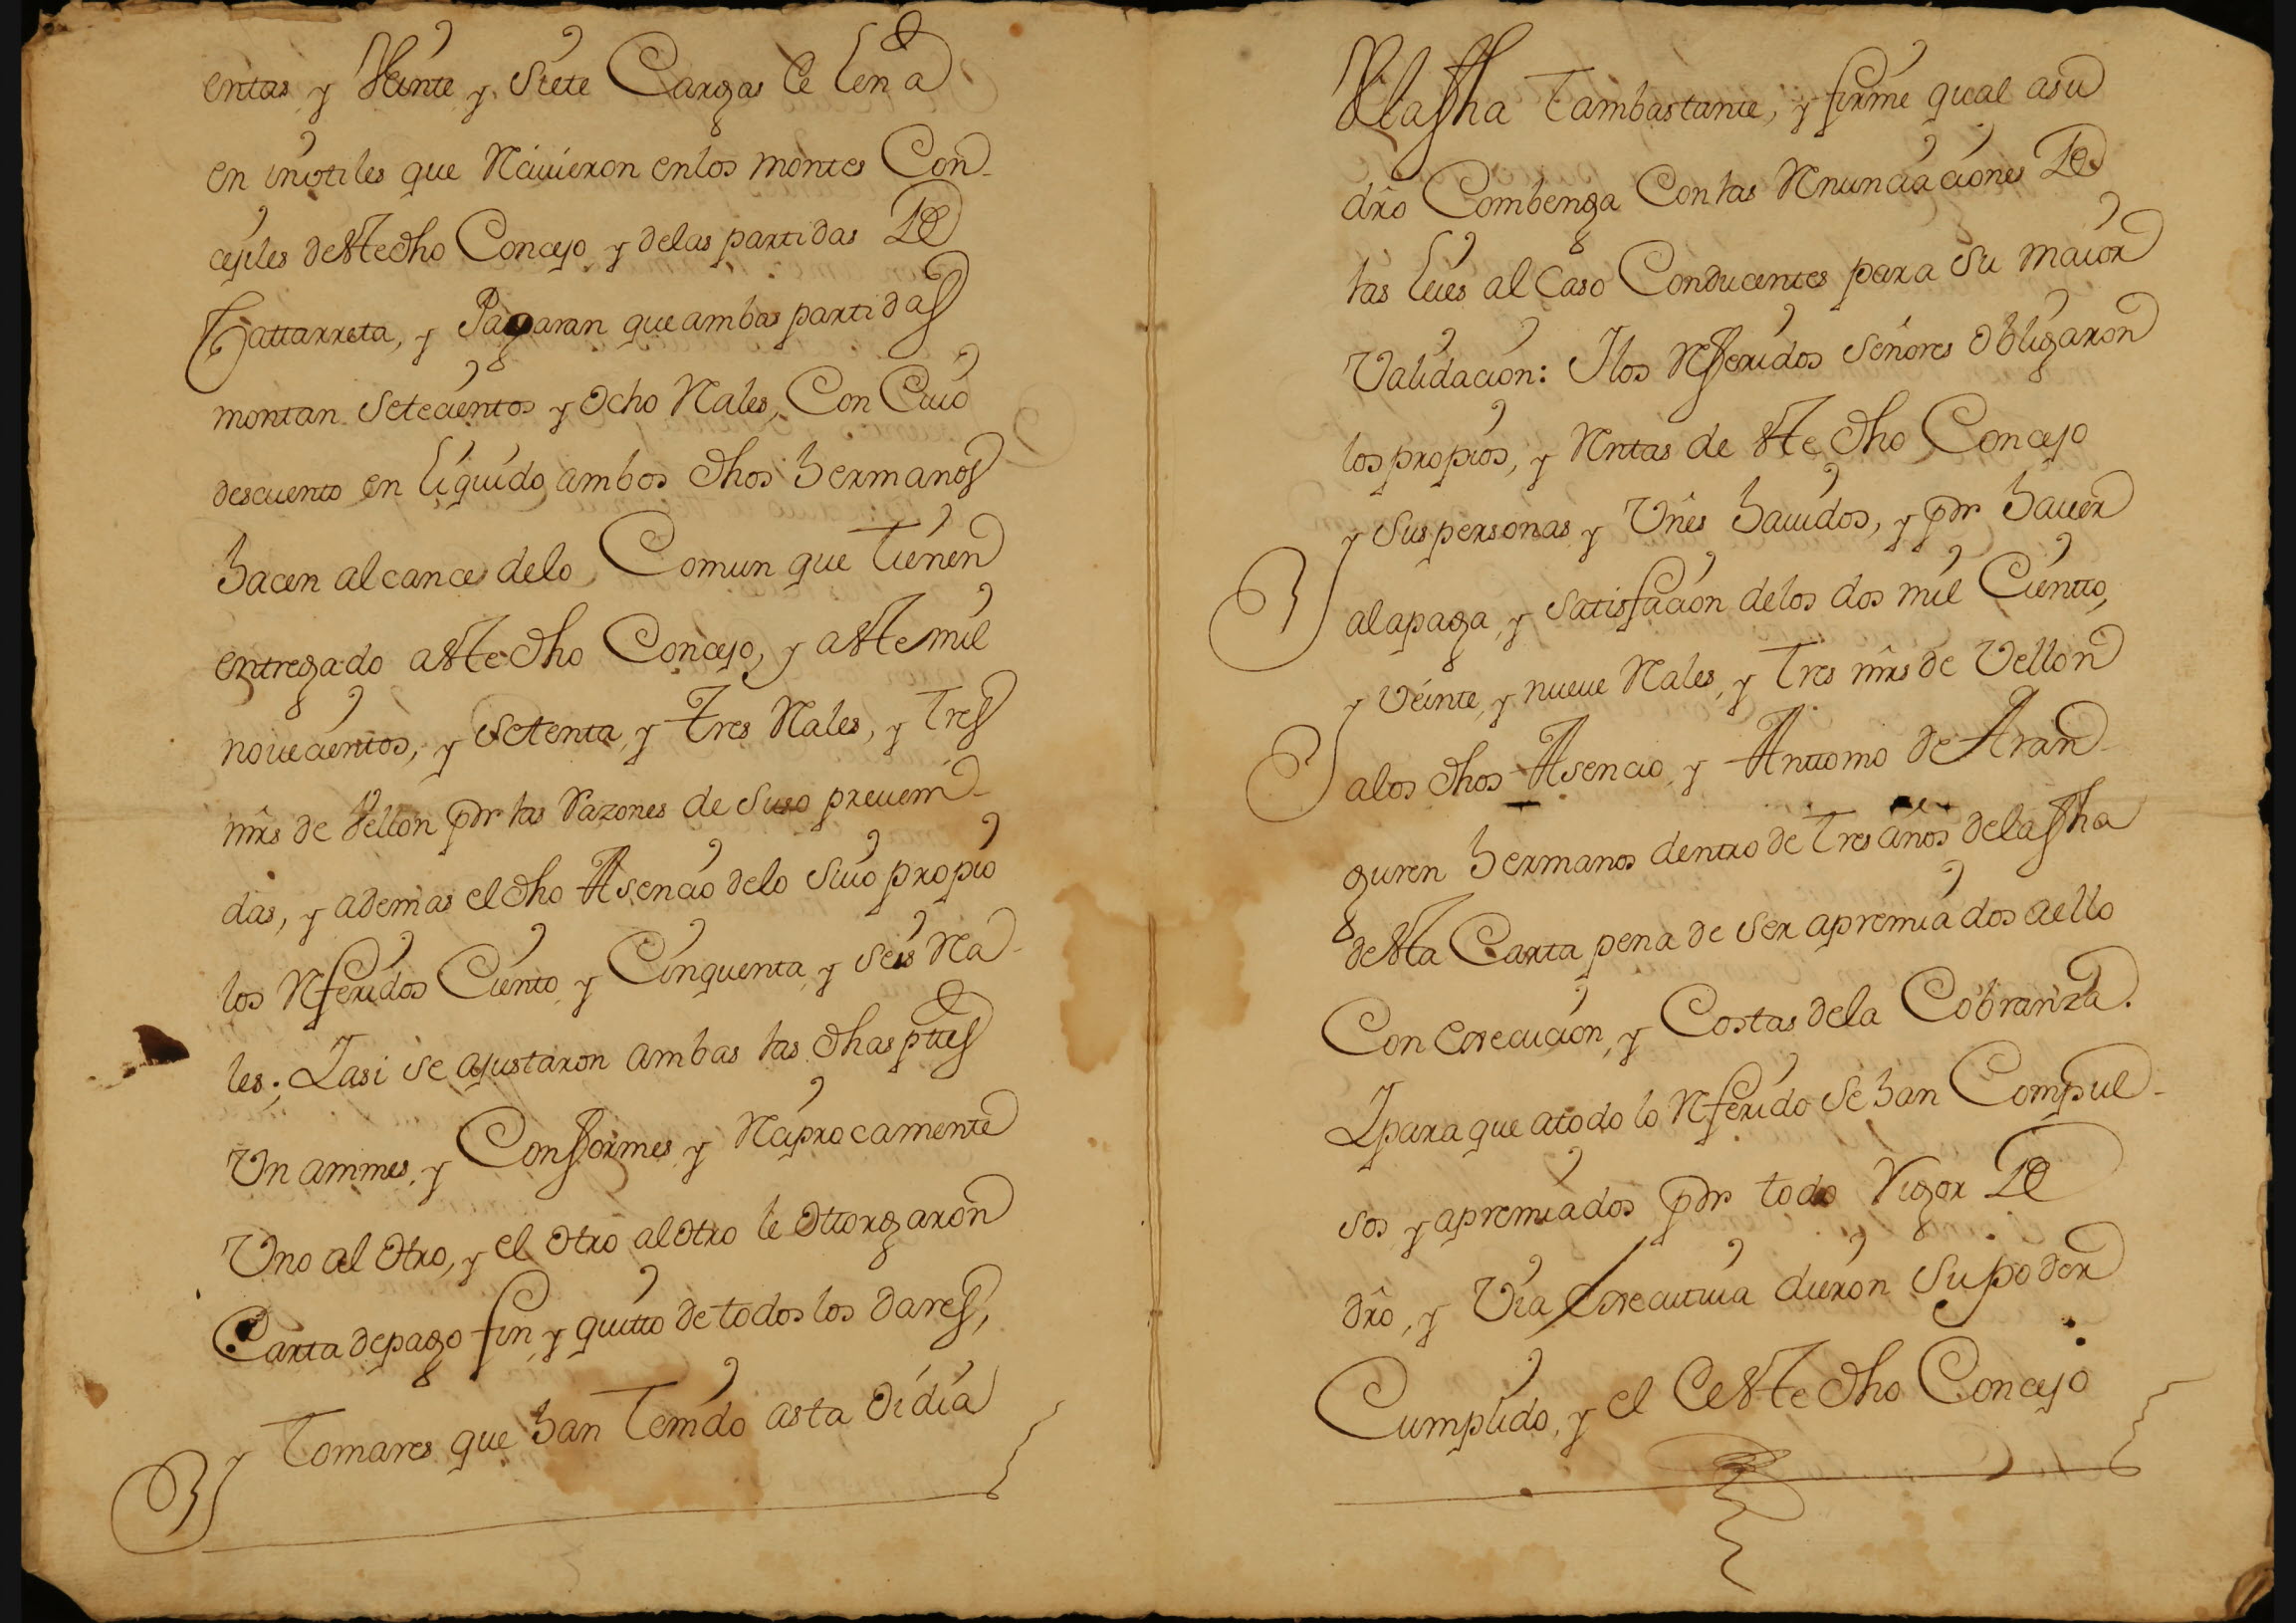 entas y Veinte y Siete Cargas de leña
en inutiles que Recivieron en los montes Con-
cejiles deste dho Concejo y delas partidas De
Gattarreta, y Pagaran que ambas partidas
montan Setecientos y ocho Rales, Con Cuio
descuento en liquido ambos dhos hermanos
hacen alcance delo Comun que tienen
entregado a este dho Concejo, y a este mil
novecientos, y setenta y tres Rales, y tres
mrs de Vellon por las Razones de Suso preveni-
das, y ademas el dho Asencio delo Suio propio
los Referidos Ciento y Cinquenta y seis Rea-
les; Y asi se ajustaron ambas las dhas ptes
Un animes, y Conformes y Reciprocamente
Uno al otro, y el otro al otro le ottorgaron
Carta de pago fin y quitto de todos los dares,
y Tomares que han tenido asta oi dia
De la fha tam bastante, y firme qual a su
dro Combenga Con las Renunciaciones De
las leies al Caso Conducentes para Su maior
Validacion: Y los Referidos Señores obligaron
los propios, y Rentas de este dho Concejo
y Sus personas y Vnes havidos, y por haver
a la paga y satisfacion delos dos mil Ciento,
y veinte, y nueve Rales, y tres mrs de Vellon
a los dhos Asencio y Anttonio de Aran-
guren hermanos dentro de tres años de la fha
desta Carta pena de ser apremiados a ello
Con execucion, y Costas dela Cobranza.
Y para que a todo lo Referido Sehan Compul-
sos y apremiados por todo Rigor De
dro, y Via executiva dieron Su poder
Cumplido, y el deste dho Concejo